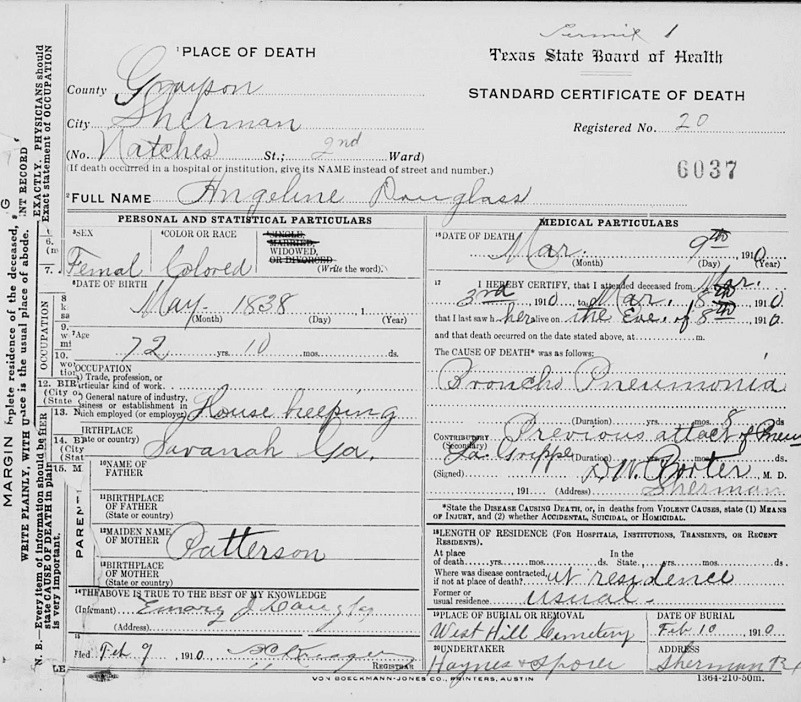 Permit 1
1 PLACE OF DEATH
Texas State Board of Health
County Grayson
STANDARD CERTIFICATE OF DEATH
City Sherman
Registered No. 20
(No. Natches St.; 2nd Ward)
(If death occurred in a hospital or institution, give its NAME instead of street and number.)
6037
2 FULL NAME Angeline Douglass
PERSONAL AND STATISTICAL PARTICULARS
3 SEX
Femal
4 COLOR OR RACE
Colored
SINGLE,
MARRIED,
WIDOWED,
OR DIVORCED
(Write the word).
6 DATE OF BIRTH
May - 1838, 1
(Month) (Day) (Year)
7 Age
72 yrs. 10 mos. ds.
OCCUPATION
(a) Trade, profession, or
particular kind of work.
General nature of industry,
business or establishment in
which employed (or employer) House keeping
BIRTHPLACE
(State or country) Savanah Ga.
PARENTS
10 NAME OF
FATHER
11 BIRTHPLACE
OF FATHER
(State or country)
12 MAIDEN NAME
OF MOTHER Patterson
13 BIRTHPLACE
OF MOTHER
(State or country)
14 THE ABOVE IS TRUE TO THE BEST OF MY KNOWLEDGE
(Informant) Emory J
(Address)
15
Filed Feb 9, 1910
REGISTRAR
MEDICAL PARTICULARS
16 DATE OF DEATH
Mar. 9th, 1910
(Month) (Day) (Year)
17 I HEREBY CERTIFY, that I attended deceased from Mar.
3rd 1910, to Mar. 8th 1910
that I last saw her alive on the Eve. of 8th 1910.
and that death occurred on the date stated above, at m.
The CAUSE OF DEATH* was as follows:
Broncho Pneumonia
(Duration) yrs. mos. 8 ds
CONTRIBUTORY Previous attack of Pneu
(Secondary)
La Grippe (Duration) yrs. mos. ds.
(Signed) D. W. Porter, M. D.
, 191 (Address) Sherman
*State the DISEASE CAUSING DEATH, or, in deaths from VIOLENT CAUSES, state (1) MEANS
OF INJURY, and (2) whether ACCIDENTAL, SUICIDAL, or HOMICIDAL.
18 LENGTH OF RESIDENCE (FOR HOSPITALS, INSTITUTIONS, TRANSIENTS, OR RECENT
RESIDENTS).
At place In the
of death yrs. mos. ds. State yrs. mos. ds.
Where was disease contracted,
if not at place of death? at residence
Former or
usual residence usual -
19 PLACE OF BURIAL OR REMOVAL
West Hill Cemetery
DATE OF BURIAL
Feb 10, 1910
20 UNDERTAKER
Haynes & Sporer
ADDRESS
Sherman
VON BOECKMANN-JONES CO., PRINTERS, AUSTIN
1364-210-50m.
MARGIN
WRITE PLAINLY, WITH
N. B.—Every item of information should be
state CAUSE OF DEATH in plain
is very important.
EXACTLY. PHYSICIANS should
Exact statement of OCCUPATION
plete residence of the deceased,
ce is the usual place of abode.
NT RECORD
OCCUPATION
12. BIR
(City o
(State
13. N
14. BI
(City
(Stat
15. M